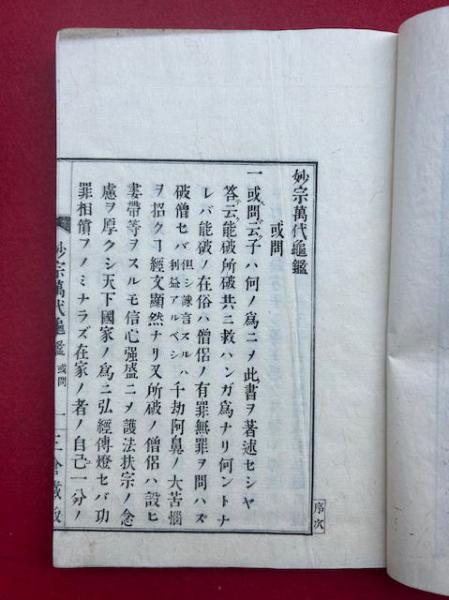 妙宗萬代龜鑑
或問
一或問云子ハ何ノ爲ニヲ此書ヲ著述セシヤ
答云能破所破共ニ救ハンガ爲ナリ何ントナ
レバ能破ノ在俗ハ僧侶ノ有罪無罪ヲ問ハズ
破僧セバ但シ諫言スルハ利益アルベシ千劫阿鼻ノ大苦惱
ヲ招クヿ經文顯然ナリ又所破ノ僧侶ハ設ヒ
妻帶等ヲスルモ信心強盛ニヲ護法扶宗ノ念
慮ヲ厚クシ天下國家ノ爲ニ弘經傳燈セバ功
罪相償フノミナラズ在家ノ者ノ自己一分ノ
妙宗萬代龜鑑 或問 一
序次